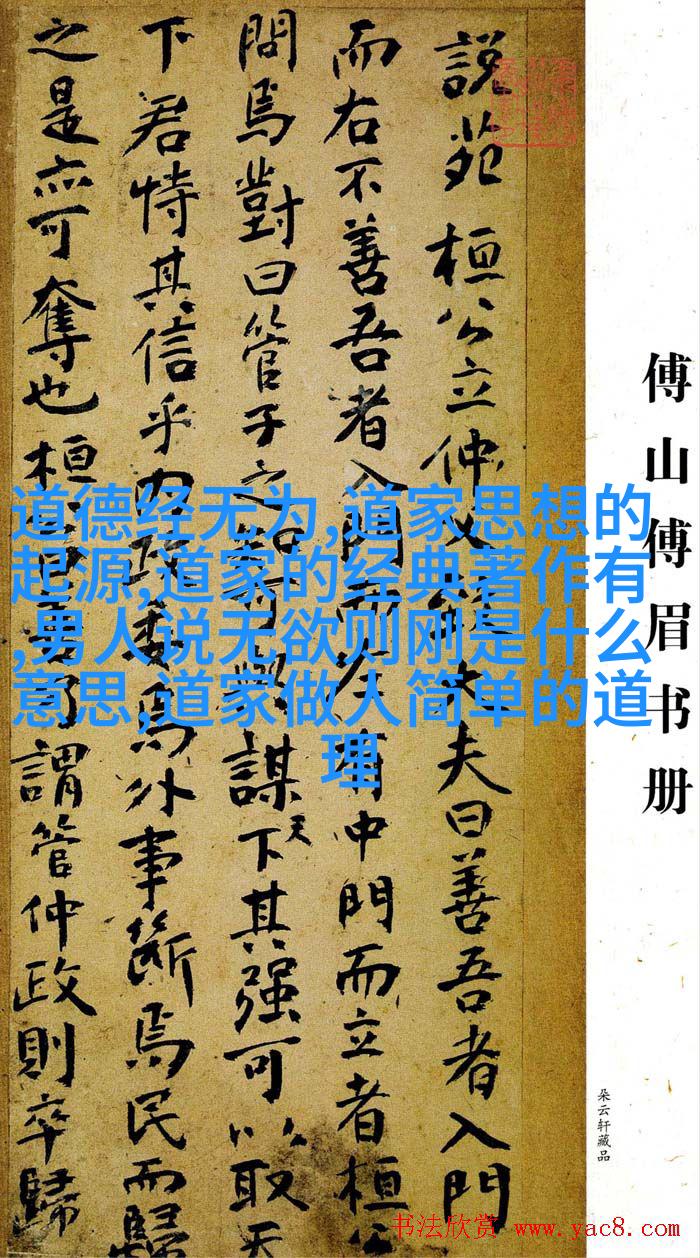 傅山傅眉书册
朵云轩藏品
說苑 桓公立仲父大夫曰善吾者入門
而右不善吾者入門而左有中門而立者桓公
問焉對曰管子之可與謀天下其强可以取天
下君恃其信乎内政委焉外事斷焉民而歸
之是亦可奪也桓謂管仲政則卒歸
道德经无为,道家思想的
起源,道家的经典著作有
,男人说无欲则刚是什么
意思,道家做人简单的道
理
书法欣赏 www.yac8.com